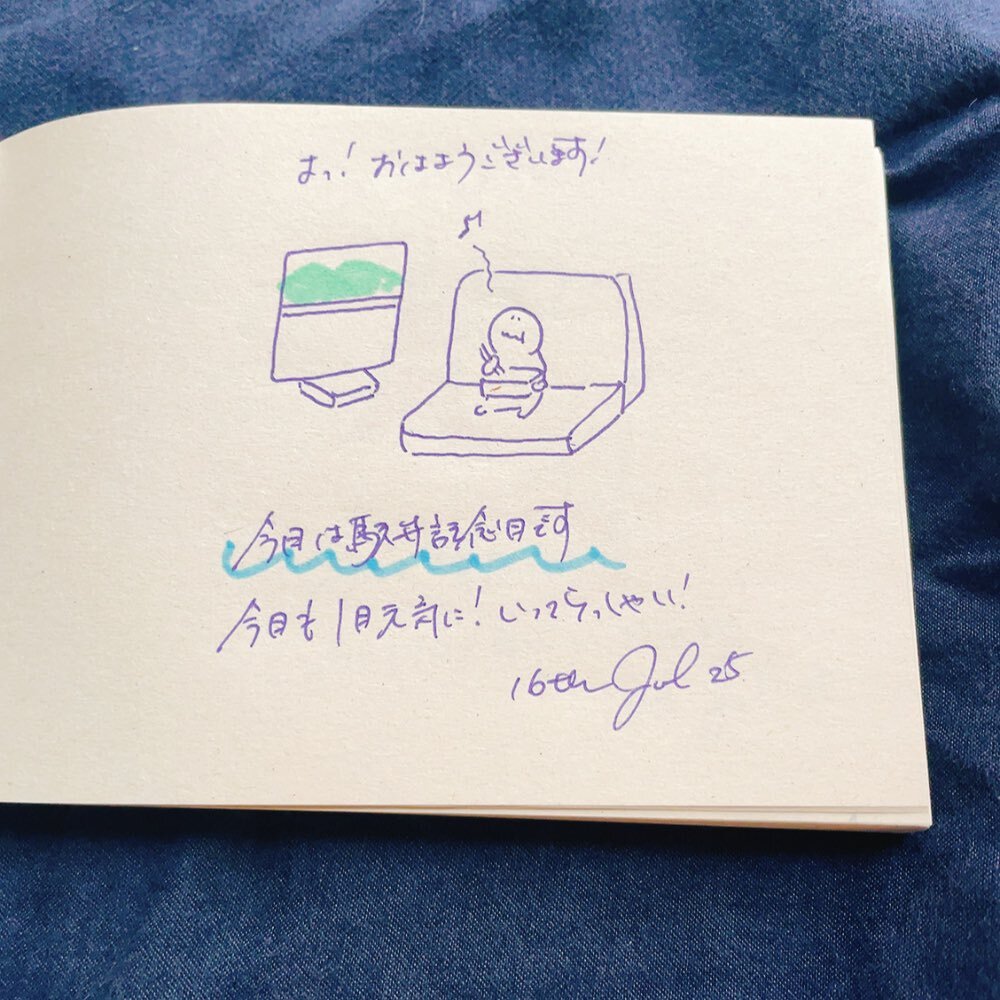 はっ！おはようございます！
今日は駅弁記念日です
今日も1日元気に！いってらっしゃい！
16th Jul 25